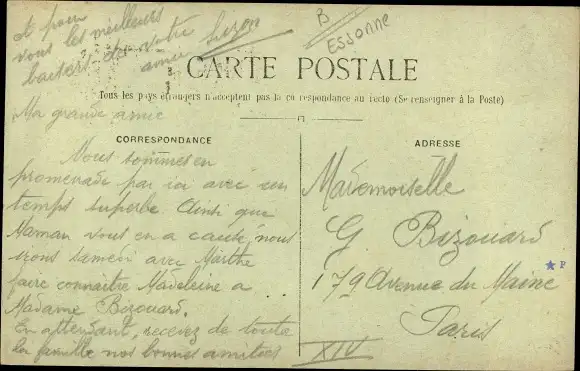 et pour
vous les meilleurs
baisers de votre
amie Suzon
B
Essonne
CARTE POSTALE
Tous les pays étrangers n'acceptent pas la correspondance au recto (Se renseigner à la Poste)
Ma grande amie
CORRESPONDANCE
Nous sommes en
promenade par ici avec un
temps superbe. Ainsi que
Maman vous en a causé, nous
irons samedi avec Marthe
faire connaitre Madeleine a
Madame Bizouard.
En attendant, recevez de toute
la famille nos bonnes amitiés
ADRESSE
Mademoiselle
G Bizouard
179 Avenue du Maine
Paris
XIV
P